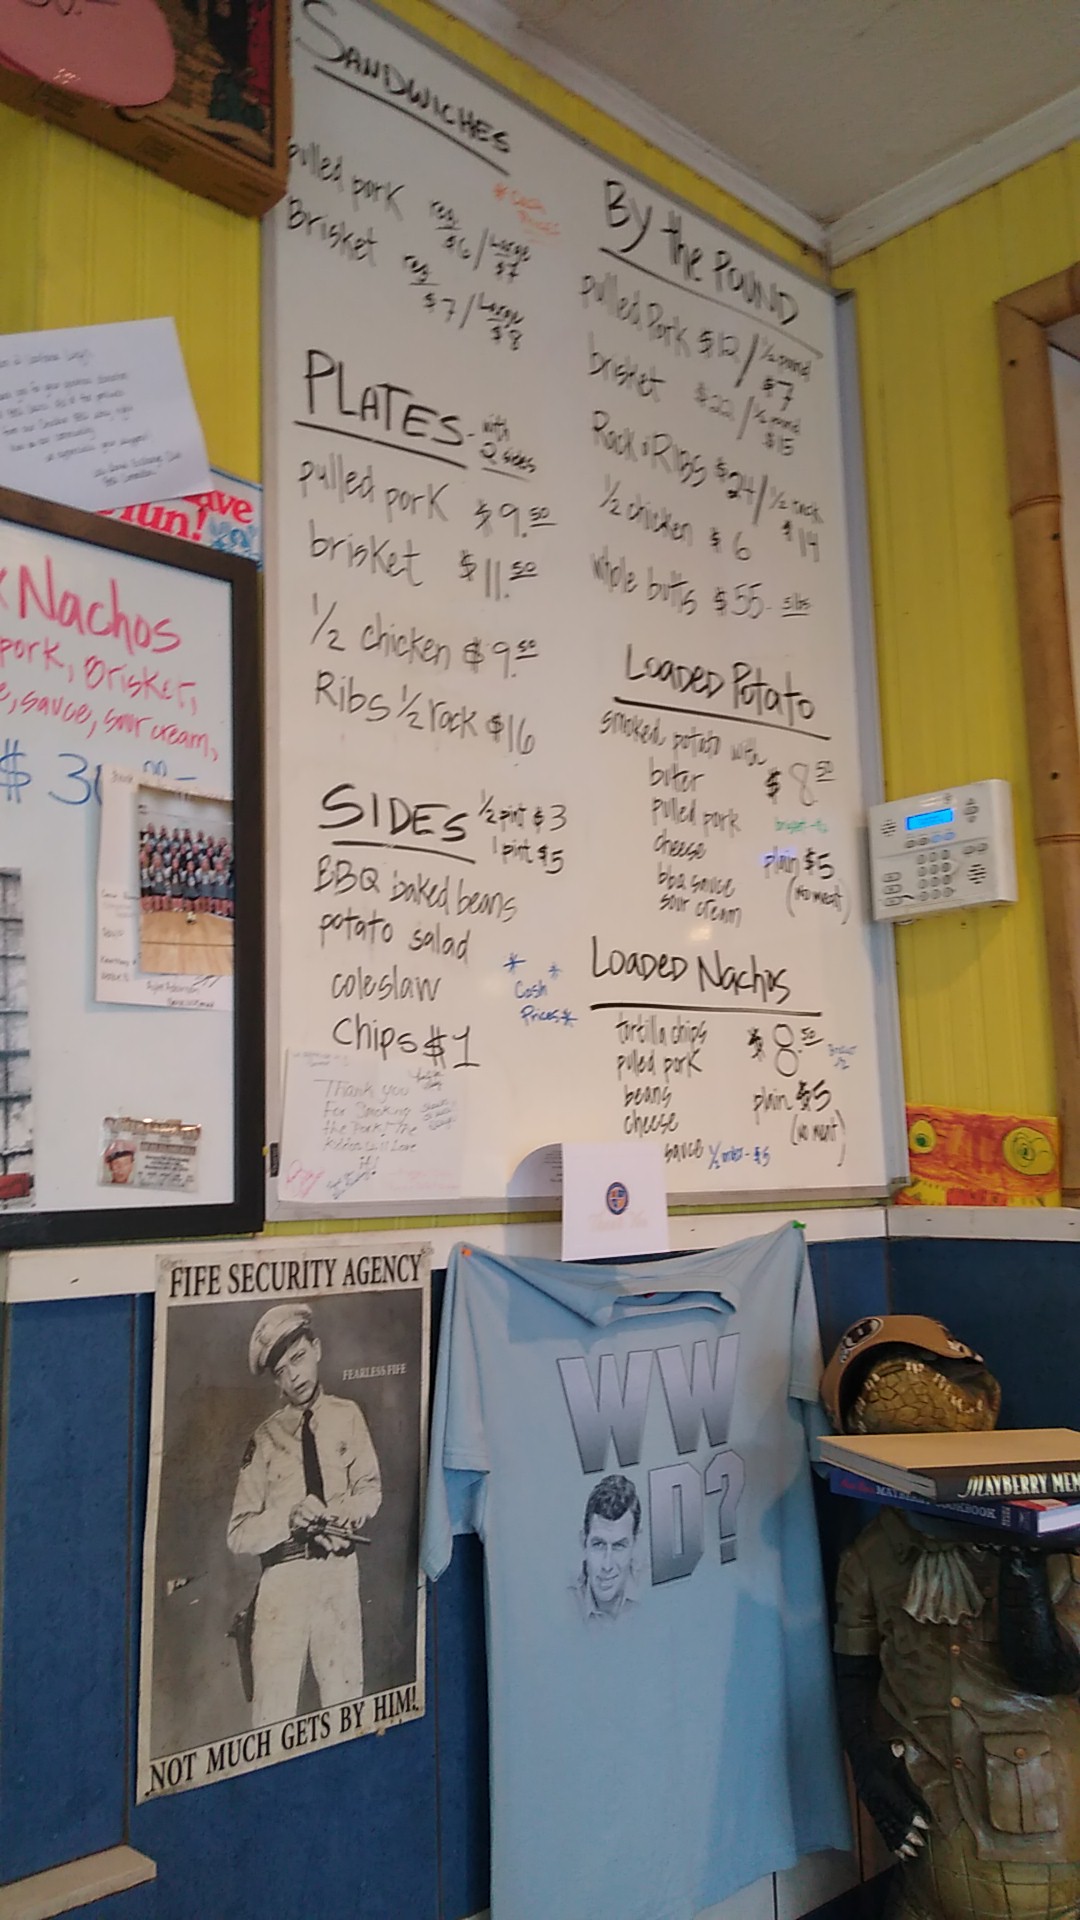 SANDWICHES
pulled pork reg $6 / Large $7
Brisket reg $7 / Large $8
PLATES - with 2 sides
pulled pork $9.50
brisket $11.50
1/2 chicken $9.50
Ribs 1/2 rack $16
SIDES 1/2 pint $3
1 pint $5
BBQ baked beans
potato salad
coleslaw
chips $1
* Cash *
Prices *
By the POUND
pulled Pork $12 / 1/2 pound $7
brisket $22 / 1/2 pound $15
Rack o Ribs $24 / 1/2 rack $14
1/2 chicken $6
whole butts $55 - 5 lbs
LOADED Potato
smoked potato with
buter $8.50
pulled pork
cheese plain $5
bbq sauce (no meat)
sour cream
LOADED Nachos
tortilla chips $8.50
pulled pork
beans plain $5
cheese (no meat)
sauce 1/2 order - $5
Thank you
For Smoking
the Pork! The
kiddos will love
it!
Nachos
pork, Brisket,
sauce, sour cream,
FIFE SECURITY AGENCY
FEARLESS FIFE
NOT MUCH GETS BY HIM!
WW
D?
MAYBERRY MEM
MAYBERRY COOKBOOK